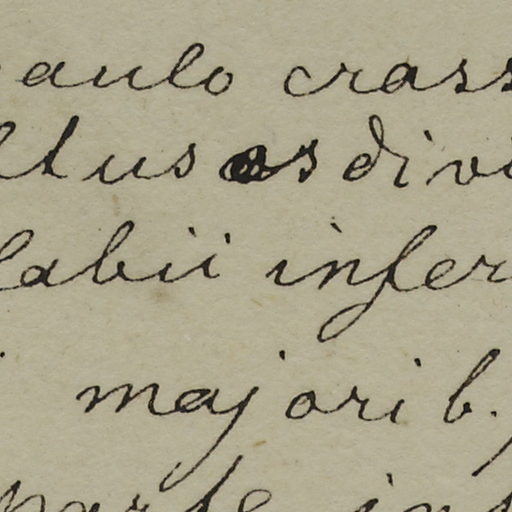 aulo crass
ltus os divi
labii infer
majorib.
parte inf